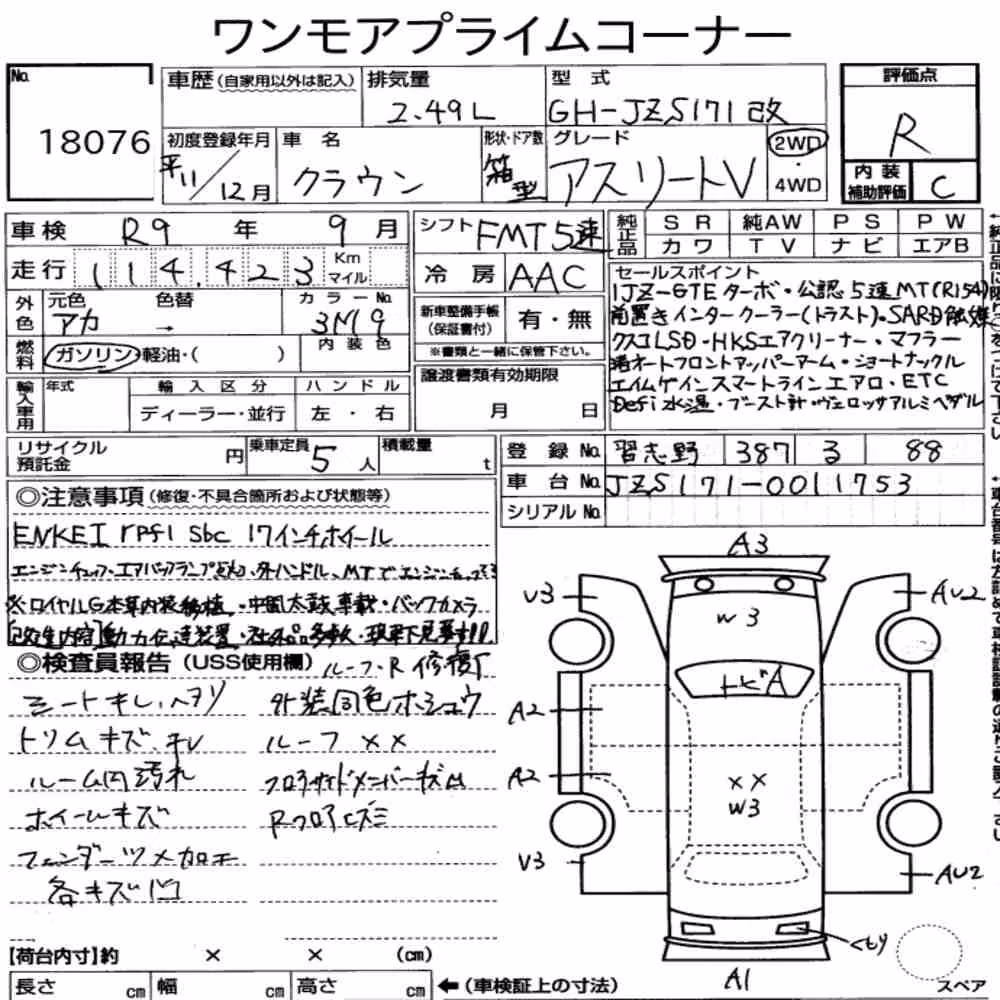 ワンモアプライムコーナー
No. 18076
車歴 (自家用以外は記入)
排気量 2.49L
型式 GH-JZS171改
評価点 R
内装補助評価 C
初度登録年月 平11/12月
車名 クラウン
形状・ドア数 箱型
グレード アスリートV
2WD・4WD
車検 R9年 9月
走行 114,423 Km マイル
シフト FMT5速
冷房 AAC
純正品 SR 純AW PS PW
カワ TV ナビ エアB
外色 元色 アカ 色替 →
カラーNo. 3M9
内装色
燃料 ガソリン・軽油・( )
新車整備手帳(保証書付) 有・無
※書類と一緒に保管下さい。
セールスポイント
1JZ-GTEターボ・公認5速MT(R154)
前置きインタークーラー(トラスト)・SARD触媒
クスコLSD・HKSエアクリーナー・マフラー
フロントアッパーアーム・ショートナックル
エイムゲインスマートラインエアロ・ETC
Defi水温・ブースト計・ヴェロッサアルミペダル
輸入車用 年式 輸入区分 ディーラー・並行
ハンドル 左・右
譲渡書類有効期限
月 日
リサイクル預託金 円
乗車定員 5人
積載量 t
登録No. 習志野 387 る 88
車台No. JZS171-0011753
シリアルNo.
◎注意事項 (修復・不具合箇所および状態等)
ENKEI rpf1 Sbc 17インチホイール
エンジンチェック・エアバックランプ
※ロイヤルG本革内装移植・中間太鼓車載・バックカメラ
[改造内容]動力伝達装置・社外品多数・現車下見
◎検査員報告 (USS使用欄)
ルーフ・R修復
シートキレ、ヘタリ
外装同色ホシュウ
トリムキズ、キレ
ルーフ××
ルーム内汚れ
フロアサイドメンバーキズ凹
ホイールキズ
Rフロアヒズミ
フェンダーツメ加工
各キズ凹
A3
U3
AU2
W3
トビA
A2
A2
××
W3
V3
AU2
くもり
A1
スペア
【荷台内寸】約 × × (cm)
長さ cm 幅 cm 高さ cm
←(車検証上の寸法)